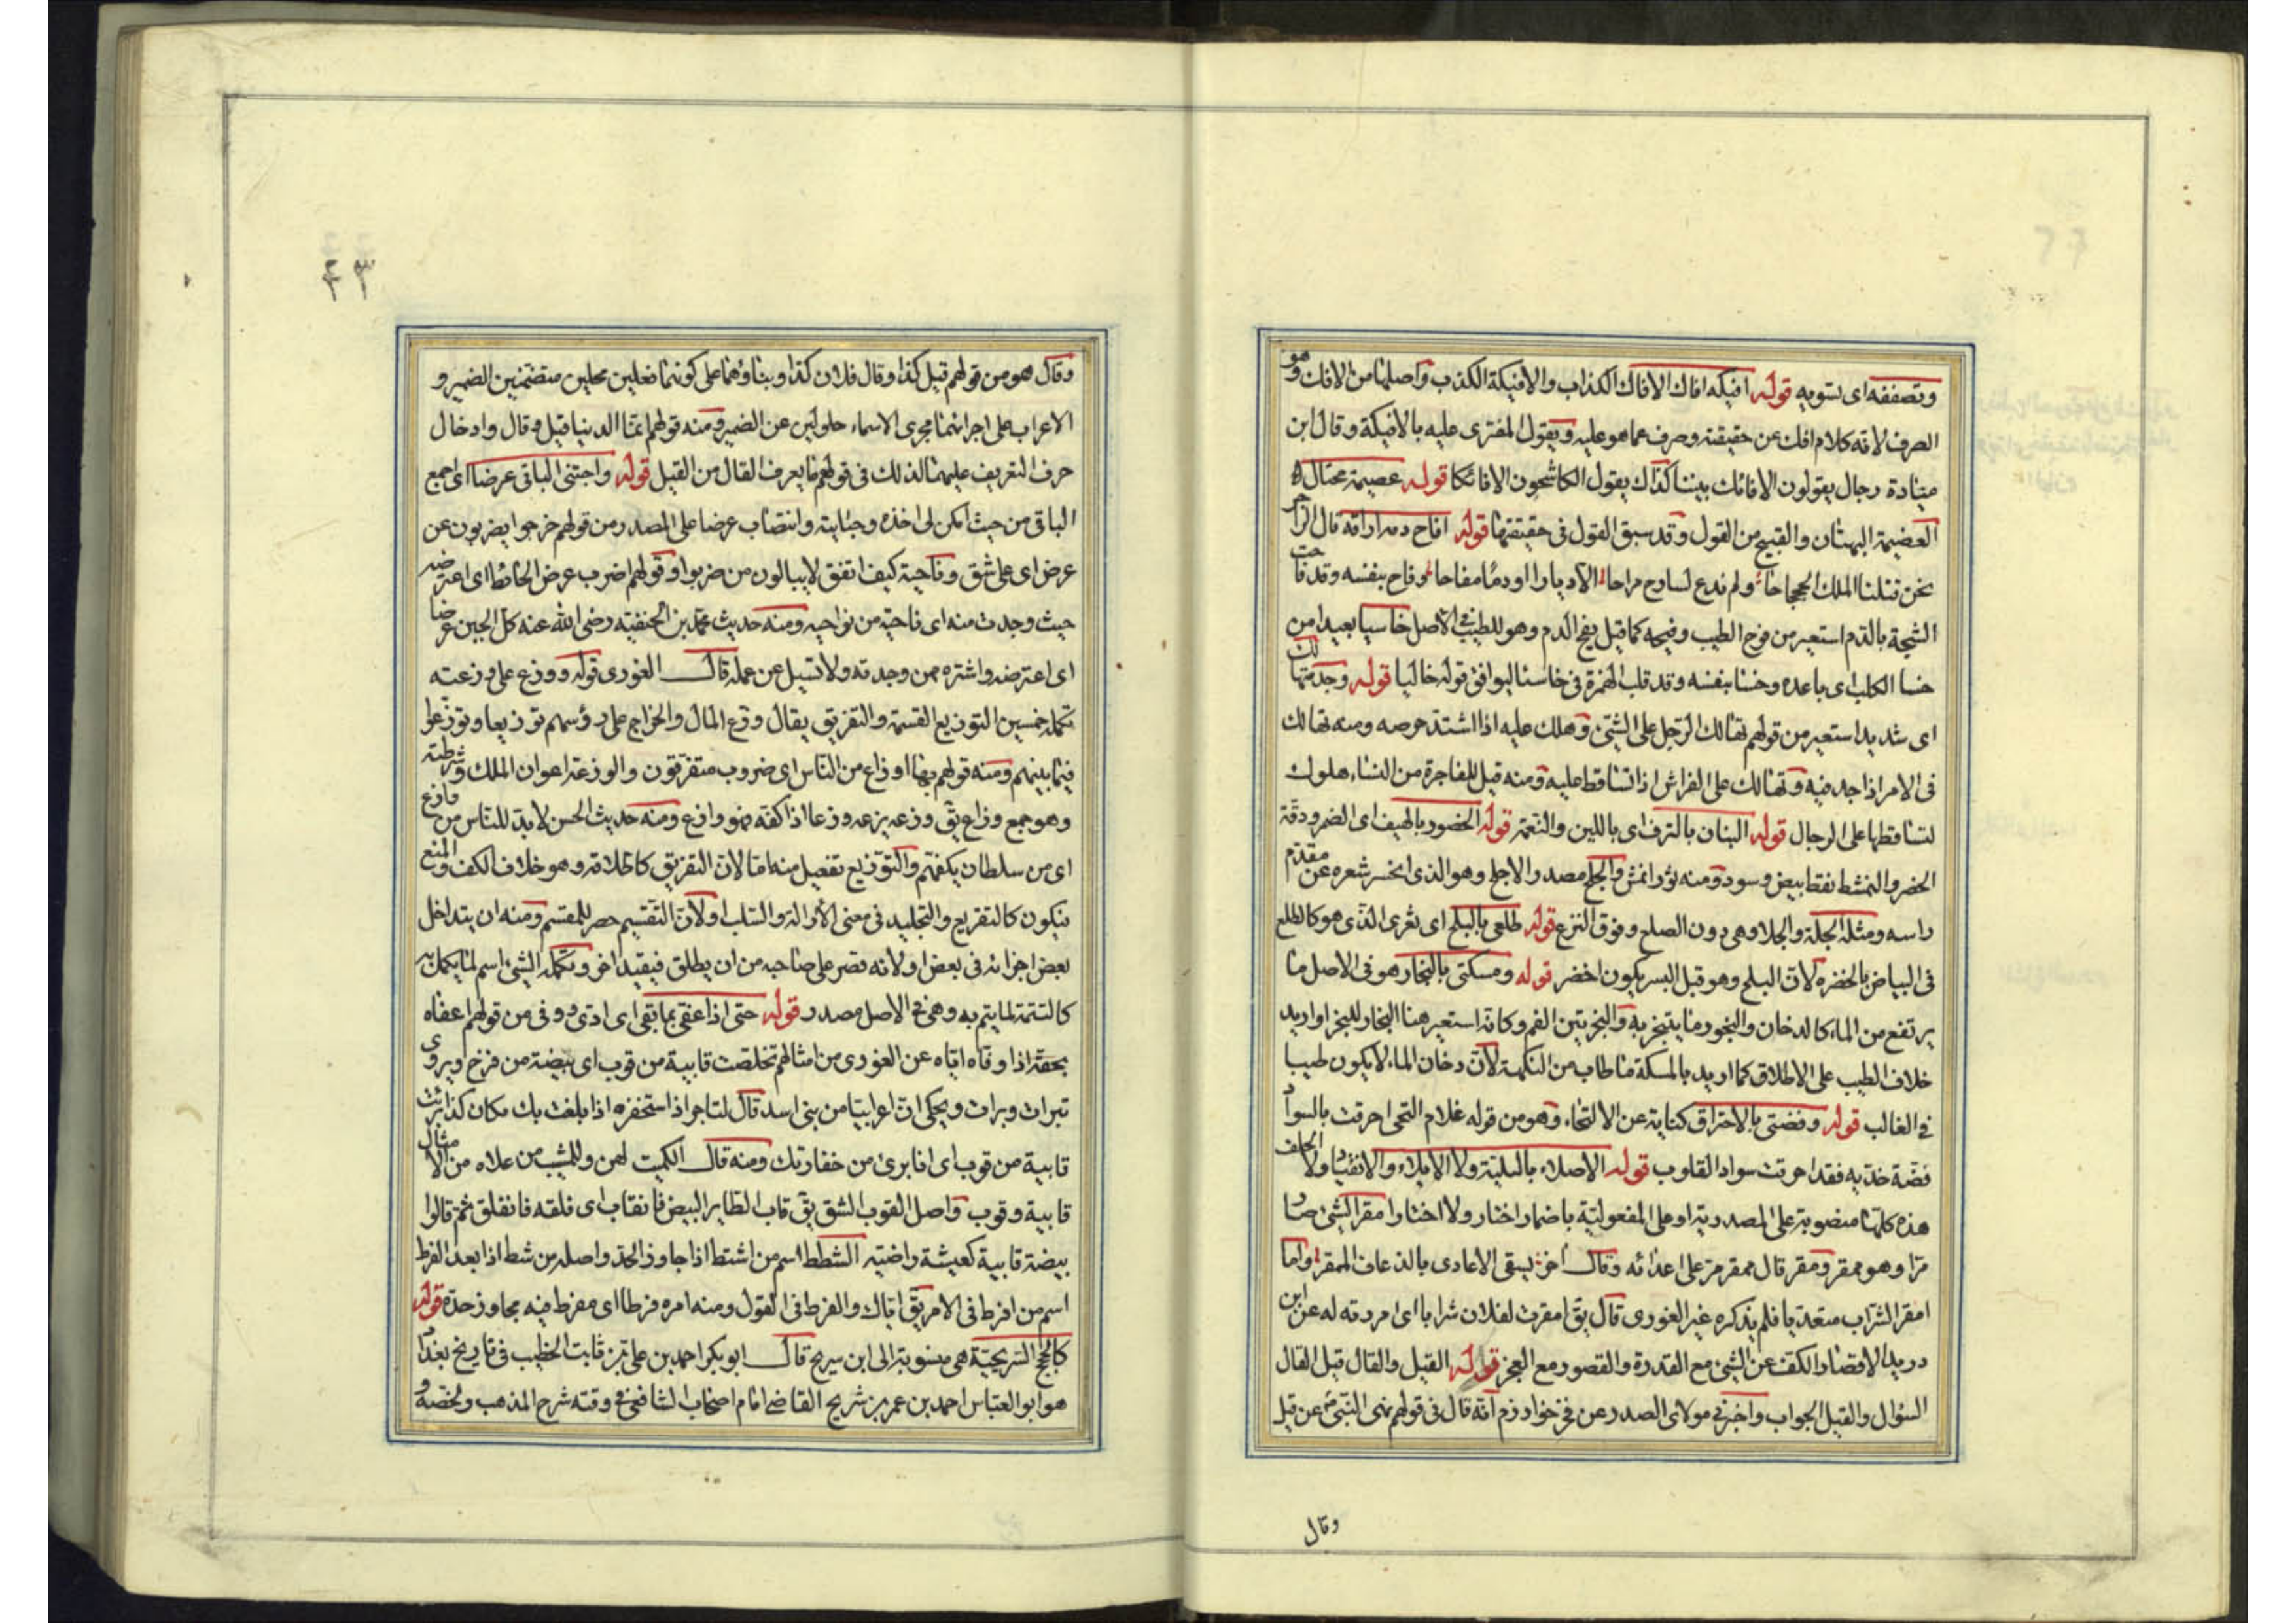 وتصففه اى تسويه قوله افيكه افاك الافاك الكذاب والافيكة الكذب واصلها من الافك وهو
الصرف لانه كلام افك عن حقيقته وصرف عما هو عليه ويقول المفترى عليه بالافيكة وقال ابن
ميادة رجال يقولون الافائك بيننا كذاك يقول الكاشحون الافائكا قوله عصيمة محتال
العضيهة البهتان والقبيح من القول وقد سبق القول فى حقيقتها قوله افاح دمه اراقه قال الراجز
نحن قتلنا الملك الجحجاحا ولم ندع لسارح مراحا الا ديارا او دما مفاحا وفاح بنفسه وقد فاحت
الشجة بالدم استعير من فوح الطيب وفيحه كما قيل يفح الدم وهو للطيب فى الاصل خاسيا بعيدا من
خسا الكلب اى باعده وخسا بنفسه وقد قلب الهمزة فى خاسئا ليوافق قوله خاليا قوله وجد متهالك
اى شديد استعير من قولهم تهالك الرجل على الشئ وهلك عليه اذا اشتد حرصه ومنه تهالك
فى الامر اذا جد فيه وتهالك على الفراش اذا تساقط عليه ومنه قيل للفاجرة من النساء هلوك
لتساقطها على الرجال قوله البنان بالترف اى باللين والنعمة قوله الخصور بالهيف اى الضمر ودقة
الخضر والنمش نقط بيض وسود ومنه ثور انمش والجلح مصدر الاجلح وهو الذى انحسر شعره عن مقدم
راسه ومثله الجلة والجلا وهى دون الصلع وفوق النزع قوله طلعى بالبلح اى ثغرى الذى هو كالطلع
فى البياض بالخضره لان البلح وهو قبل البسر يكون اخضر قوله ومسكتى بالبخار هو فى الاصل ما
يرتفع من الماء كالدخان والبخور ما يتبخر به والبخر نتن الفم وكانه استعير هنا البخار للبخر او اريد
خلاف الطيب على الاطلاق كما اريد بالمسكة ما طاب من النكهة لان دخان الماء لا يكون طيبا
فى الغالب قوله وفضتى بالاحتراق كناية عن الالتحاء وهو من قوله غلام التحى احرقت بالسواد
فضة خديه فقد احرقت سواد القلوب قوله الاصلاء بالبلية ولا الايلاء والانقياد ولا الحلف
هذه كلها منصوبة على المصدرية او على المفعولية باضمار اختار ولا اختار امقر الشئ صار
مرا وهو ممقر ومقر قال ممقر مر على اعدائه وقال اخر يسقى الاعادى بالذعاف الممقر واما
امقر الشراب متعديا فلم يذكره غير الغورى قال يق امقرت لفلان شرابا اى امررته له عن ابن
دريد الاقصار الكف عن الشئ مع القدرة والقصور مع العجز قوله القيل والقال قيل القال
السؤال والقيل الجواب واخبرنى مولاى الصدر عن فخر خوارزم انه قال فى قولهم نهى النبى عن قيل
وقال
٤٣
وقال هو من قولهم قيل كذا وقال فلان كذا وبناؤهما على كونهما فعلين محليين متضمنين الضمير و
الاعراب على اجرائهما مجرى الاسماء حلولين عن الضمير ومنه قولهم انما الدنيا قيل وقال وادخال
حرف التعريف عليهما لذلك فى قولهم ما يعرف القال من القيل قوله واجتنى الباقى عرضا اى اجمع
الباقى من حيث امكن لى اخذه وجنايته وانتصاب عرضا على المصدر ومن قولهم خرجوا يضربون عن
عرض اى على شق وناحية كيف اتفق لا يبالون من ضربوا وقولهم اضرب عرض الحائط اى اعترضه
حيث وجدت منه اى ناحية من نواحيه ومنه حديث محمد بن الحنفية رضى الله عنه كل الجبن عرضا
اى اعترضه واشتره ممن وجدته ولا تسيل عن عمله قال الغورى قوله ووزع على وزعته
تكملة خمسين التوزيع القسمة والتفريق يقال وزع المال والخراج على رؤسهم توزيعا وتوزعوا
فيما بينهم ومنه قولهم بها اوزاع من الناس اى ضروب متفرقون والوزعة اعوان الملك وشرطته
وهو جمع وزاع يق وزعه يزعه وزعا اذا كفه فهو وازع ومنه حديث الحسن لا بد للناس من وازع
اى من سلطان يكفهم والتوزيع تفصيل منه اما لان التفريق كاطلاقه وهو خلاف الكف والمنع
فيكون كالتقريع والتجليد فى معنى الازالة والسلب او لان التقسيم حصر للمقسم ومنه ان يتداخل
بعض اجزائه فى بعض او لانه قصر على صاحبه من ان يطلق فيقيد اخر وتكملة الشئ اسم لما يكمل به
كالتتمة لما يتم به وهى فى الاصل مصدر قوله حتى اذا عقى بما بقى اى ادى ووفى من قولهم اعفاه
بحقه اذا وفاه اياه عن الغورى من امثالهم تخلصت قابية من قوب اى بيضة من فرخ ويروى
تبرات وبرات ويحكى ان اعرابيا من بنى اسد قال لتاجر اذا استخفره اذا بلغت بك مكان كذا برئت
قابية من قوب اى انا برئ من خفارتك ومنه قال الكميت لهن وللمشيب من علاه من الامثال
قابية وقوب واصل القوب الشق يق قاب الطاير البيض فانقاب اى فلقه فانفلق ثم قالوا
بيضة قابية كعيشة راضية الشطط اسم من اشتط اذا جاوز الحد واصله من شط اذا بعد الفرط
اسم من افرط فى الامر يق اياك والفرط فى القول ومنه امره فرطا اى مفرط فيه مجاوز حده قوله
كالحجج السريجية هى منسوبة الى ابن سريج قال ابو بكر احمد بن على بن ثابت الخطيب فى تاريخ بغداد
هو ابو العباس احمد بن عمر بن شريح القاضى امام اصحاب الشافعى فى وقته شرح المذهب ولخصه و